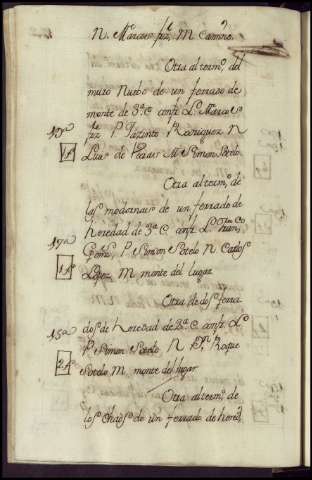 N. Marcos frz, M Camino.
Otra al termo. del
muro Nuebo de un ferrado de
monte de 3ª C confr Le Marcos
frz P Jazinto Rodriguez N
17ª
1f
Luis de M Simon Sotelo.
Otra al termo. de
las de un ferrado de
heredad de 3ª C confr L
17ª
P Simon Sotelo N Carlos
1f
Lopez M monte del lugar
Otra de dos ferra
15ª
dos de heredad de 2ª C confr Le
P Simon Sotelo N Dn Roque
2f
Sotelo M monte del lugar
Otra al termo. de
los de un ferrado de hered